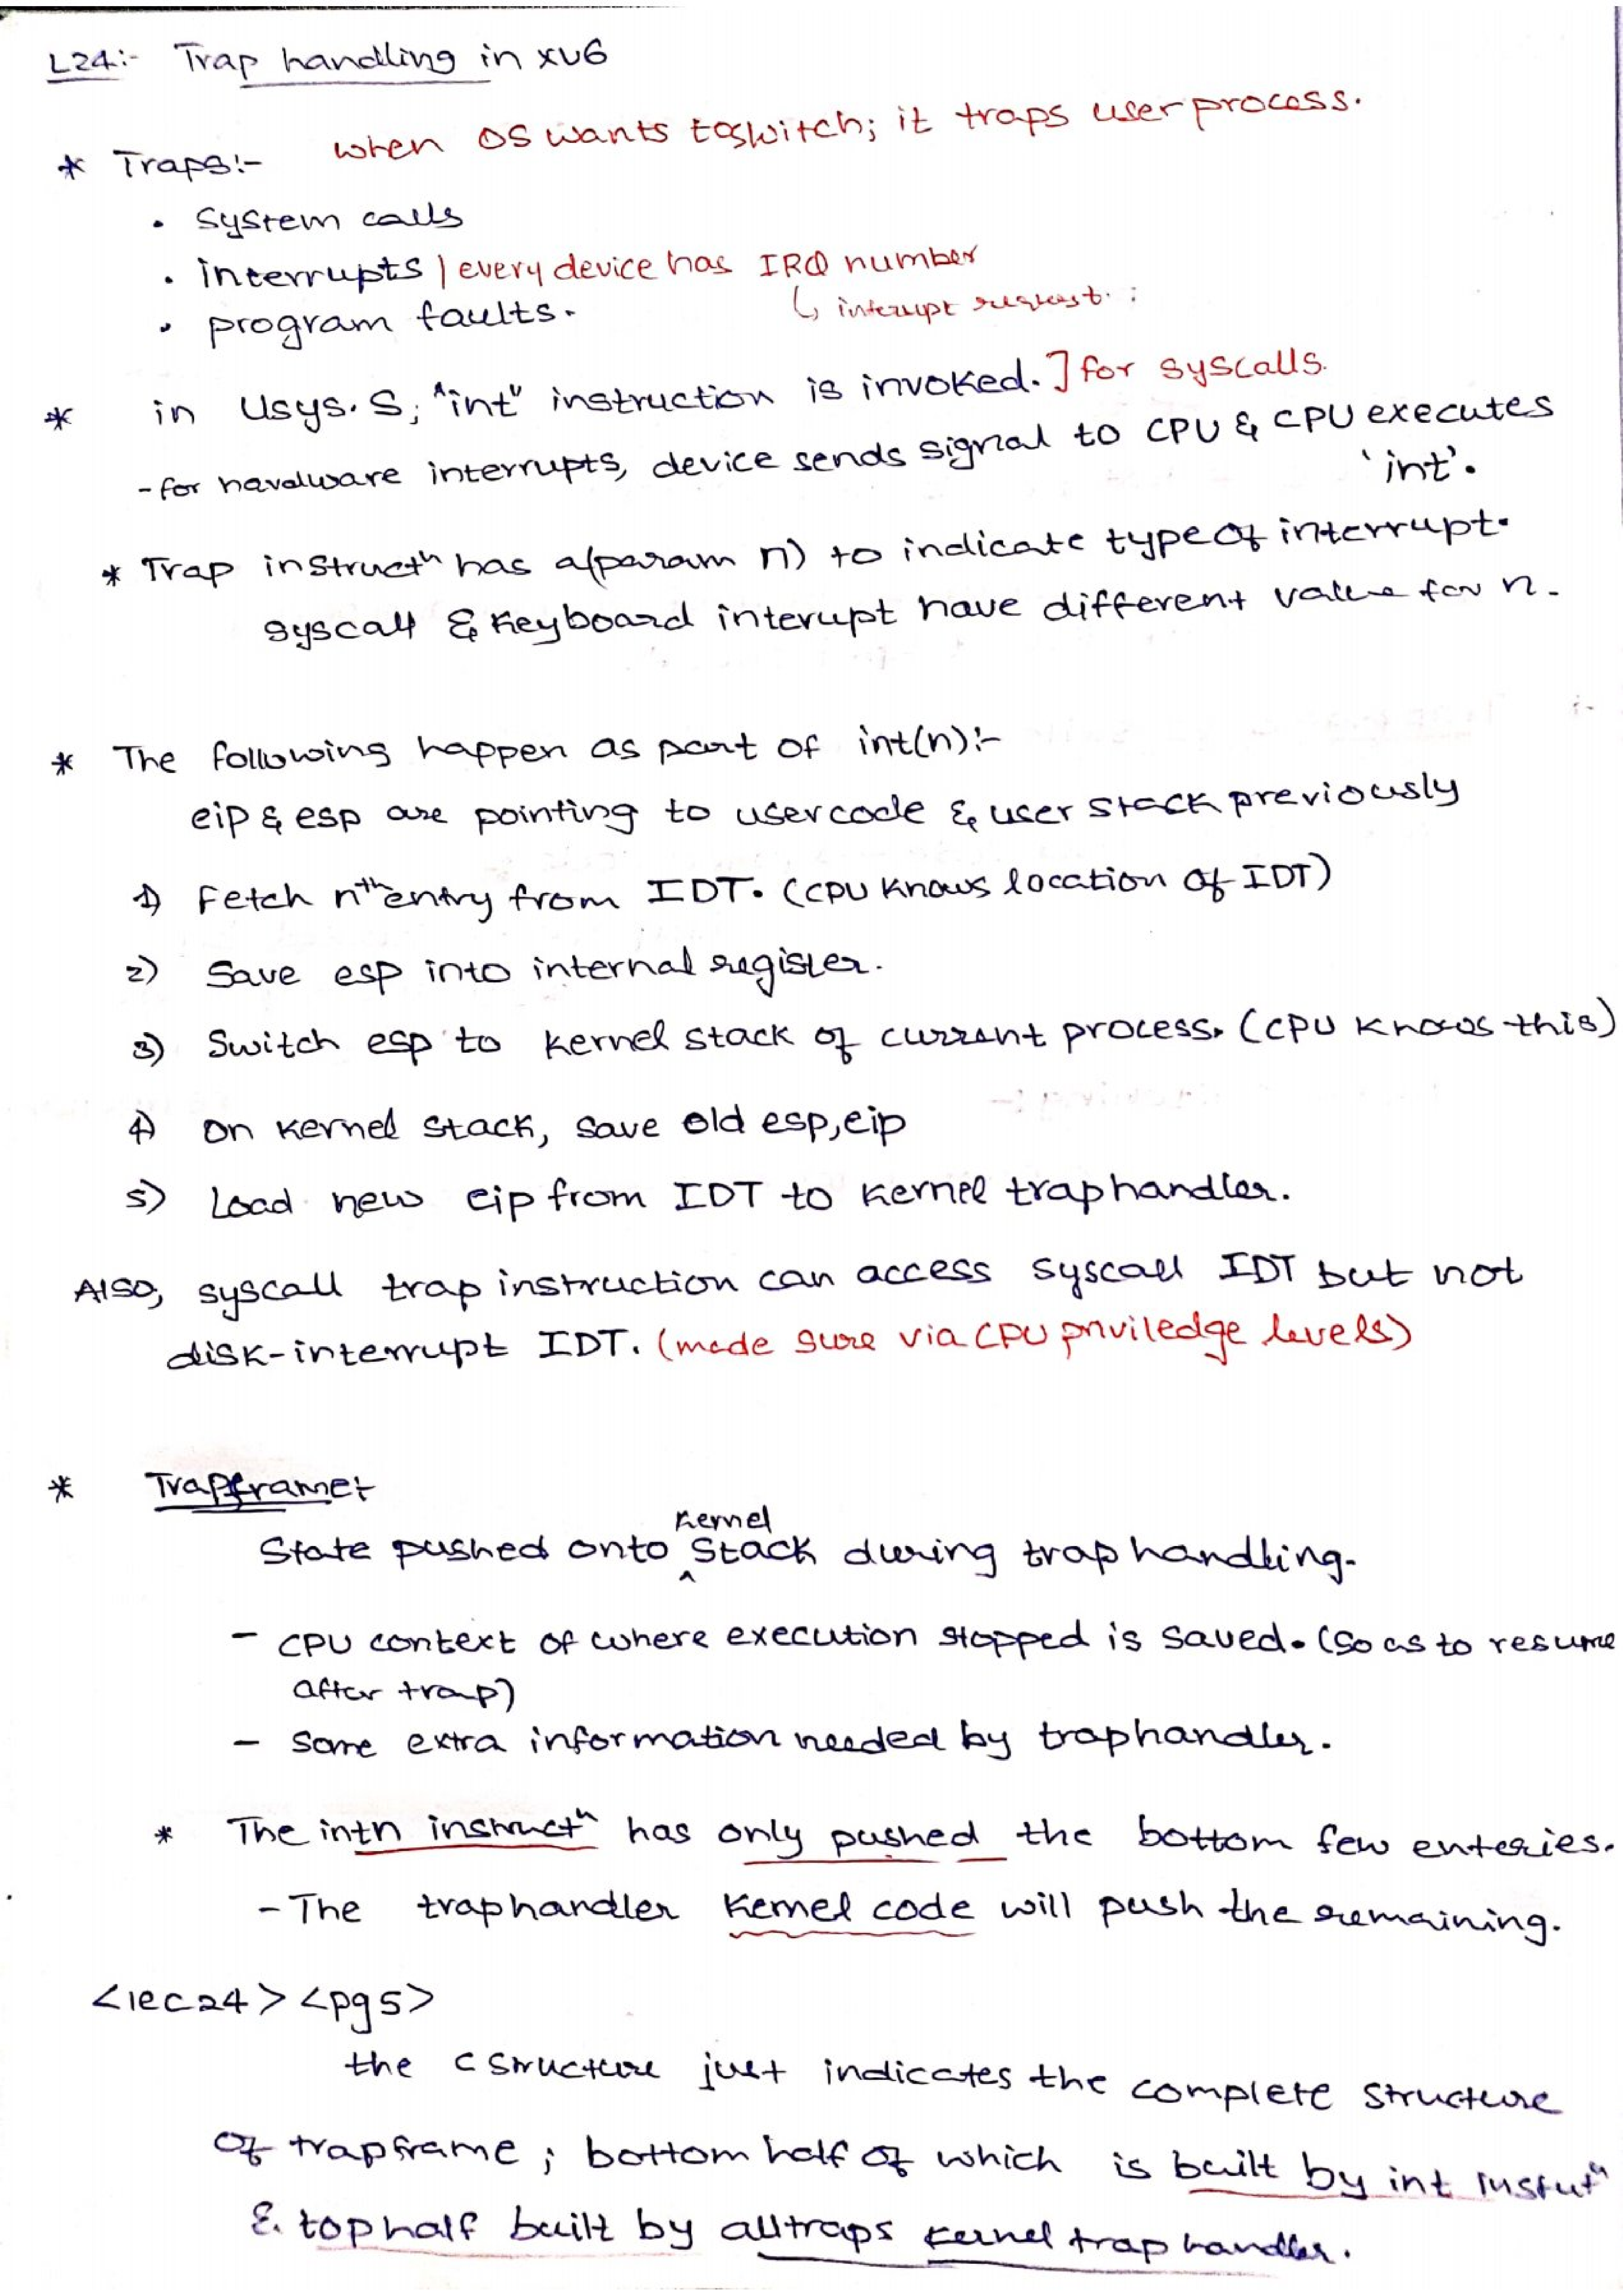 L24:- Trap handling in xv6
* Traps:- when OS wants to switch; it traps user process.
• System calls
• interrupts | every device has IRQ number
↳ interupt request.
• program faults.
* in Usys.S; "int" instruction is invoked. ] for syscalls.
- for havdware interrupts, device sends signal to CPU & CPU executes
'int'.
* Trap instructⁿ has a(param n) to indicate type of interrupt.
syscall & Keyboard interupt have different value for n.
* The following happen as part of int(n):-
eip & esp are pointing to user code & user stack previously
1) Fetch nth entry from IDT. (CPU knows location of IDT)
2) Save esp into internal register.
3) Switch esp to kernel stack of current process. (CPU knows this)
4) On kernel stack, save old esp, eip
5) Load new eip from IDT to kernel trap handler.
Also, syscall trap instruction can access syscall IDT but not
disk-interrupt IDT. (made sure via CPU priviledge levels)
* Trapframe:-
State pushed onto kernel stack during trap handling.
- CPU context of where execution stopped is saved. (so as to resume
after trap)
- Some extra information needed by traphandler.
* The int n instructⁿ has only pushed the bottom few enteries.
- The traphandler kernel code will push the remaining.
<lec24> <pg5>
the C structure just indicates the complete structure
of trapframe; bottom half of which is built by int instutⁿ
& top half built by alltraps kernel trap handler.